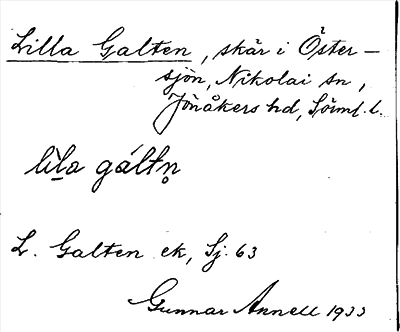 Lilla Galten, skär i Öster-
sjön, Nikolai sn,
Jönåkers hd, Sörml. l.
lìla gáltn̥
L. Galten ek, Sj. 63
Gunnar Annell 1933